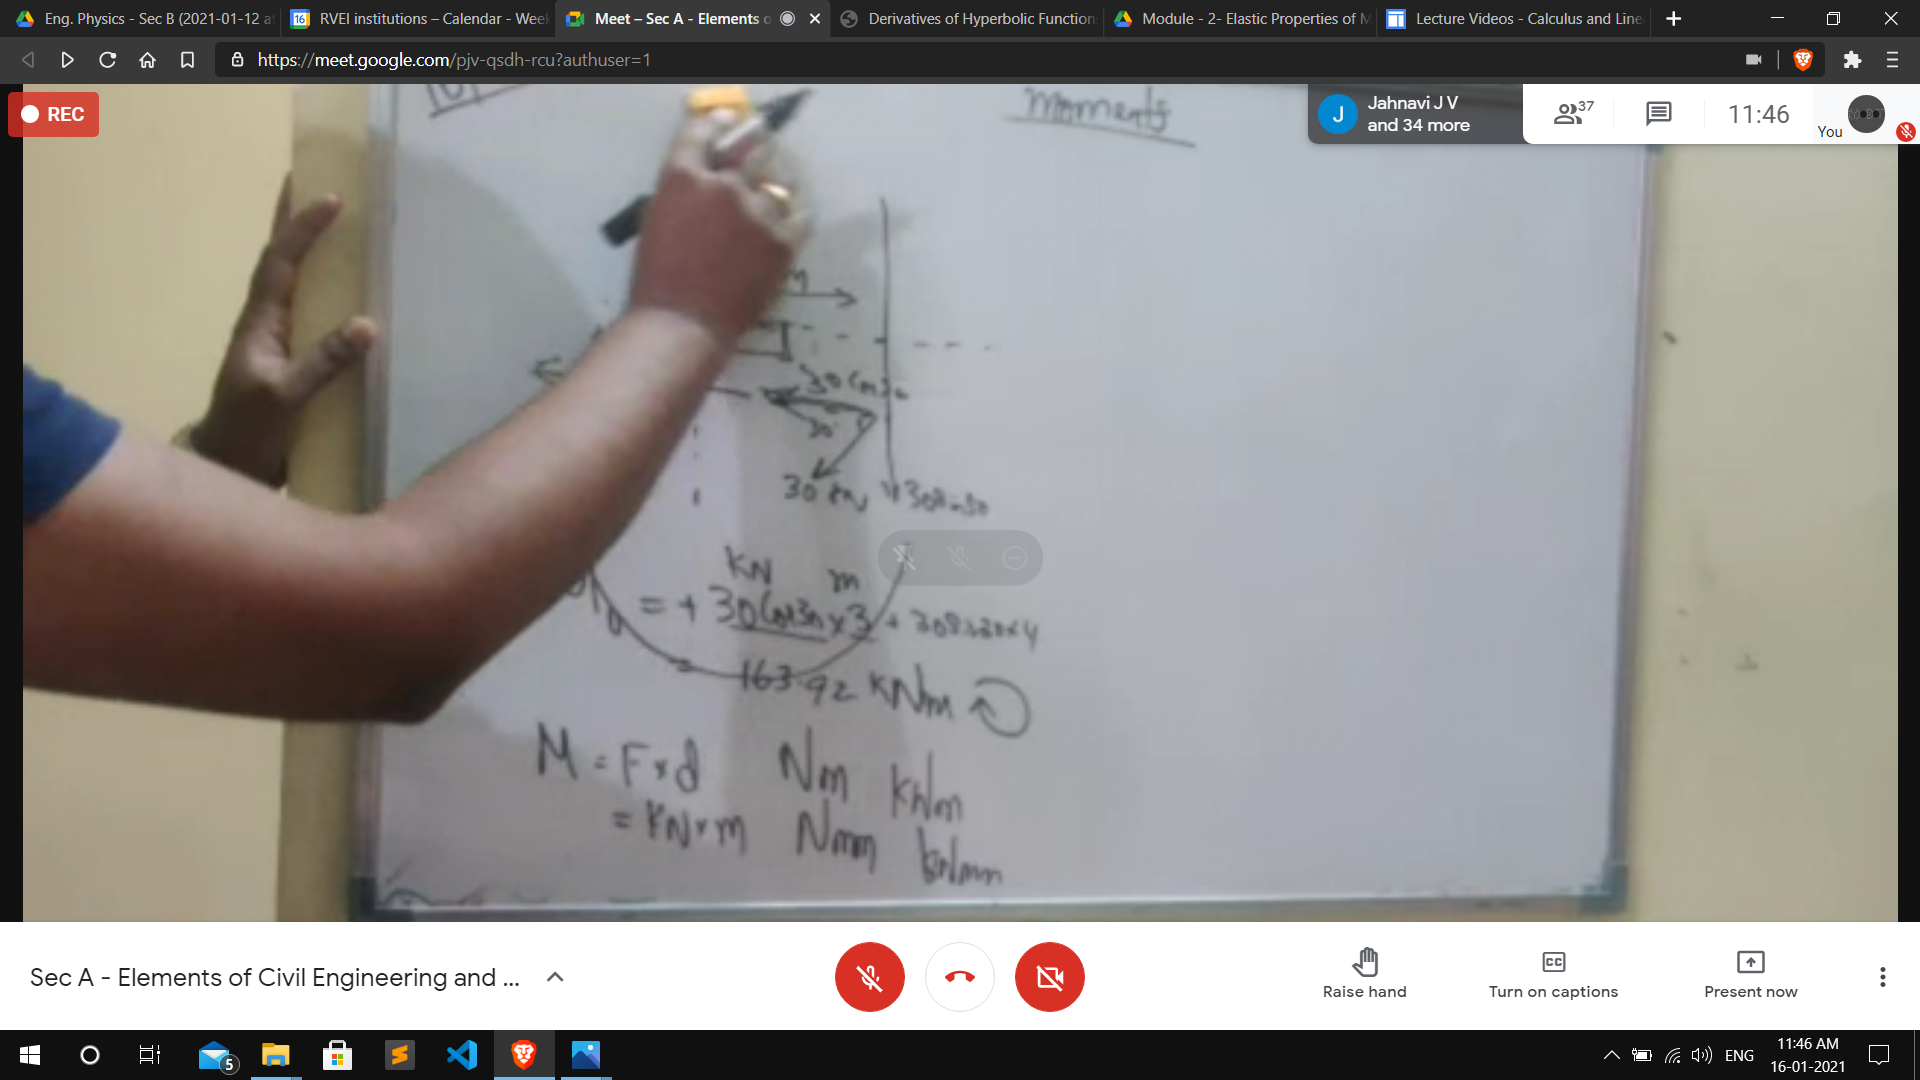 Eng. Physics - Sec B (2021-01-12 a
RVEI institutions – Calendar - Week
Meet – Sec A - Elements o
Derivatives of Hyperbolic Function
Module - 2- Elastic Properties of M
Lecture Videos - Calculus and Line
https://meet.google.com/pjv-qsdh-rcu?authuser=1
REC
Moments
J
Jahnavi J V
and 34 more
37
11:46
You
30 Cos30
30
30 KN
30Sin30
KN m
= + 30Cos30 x 3 + 30Sin30 x 4
= 163.92 KNm
M = F x d Nm KNm
= KN x m Nmm KNmm
Sec A - Elements of Civil Engineering and ...
Raise hand
Turn on captions
Present now
5
ENG
11:46 AM
16-01-2021